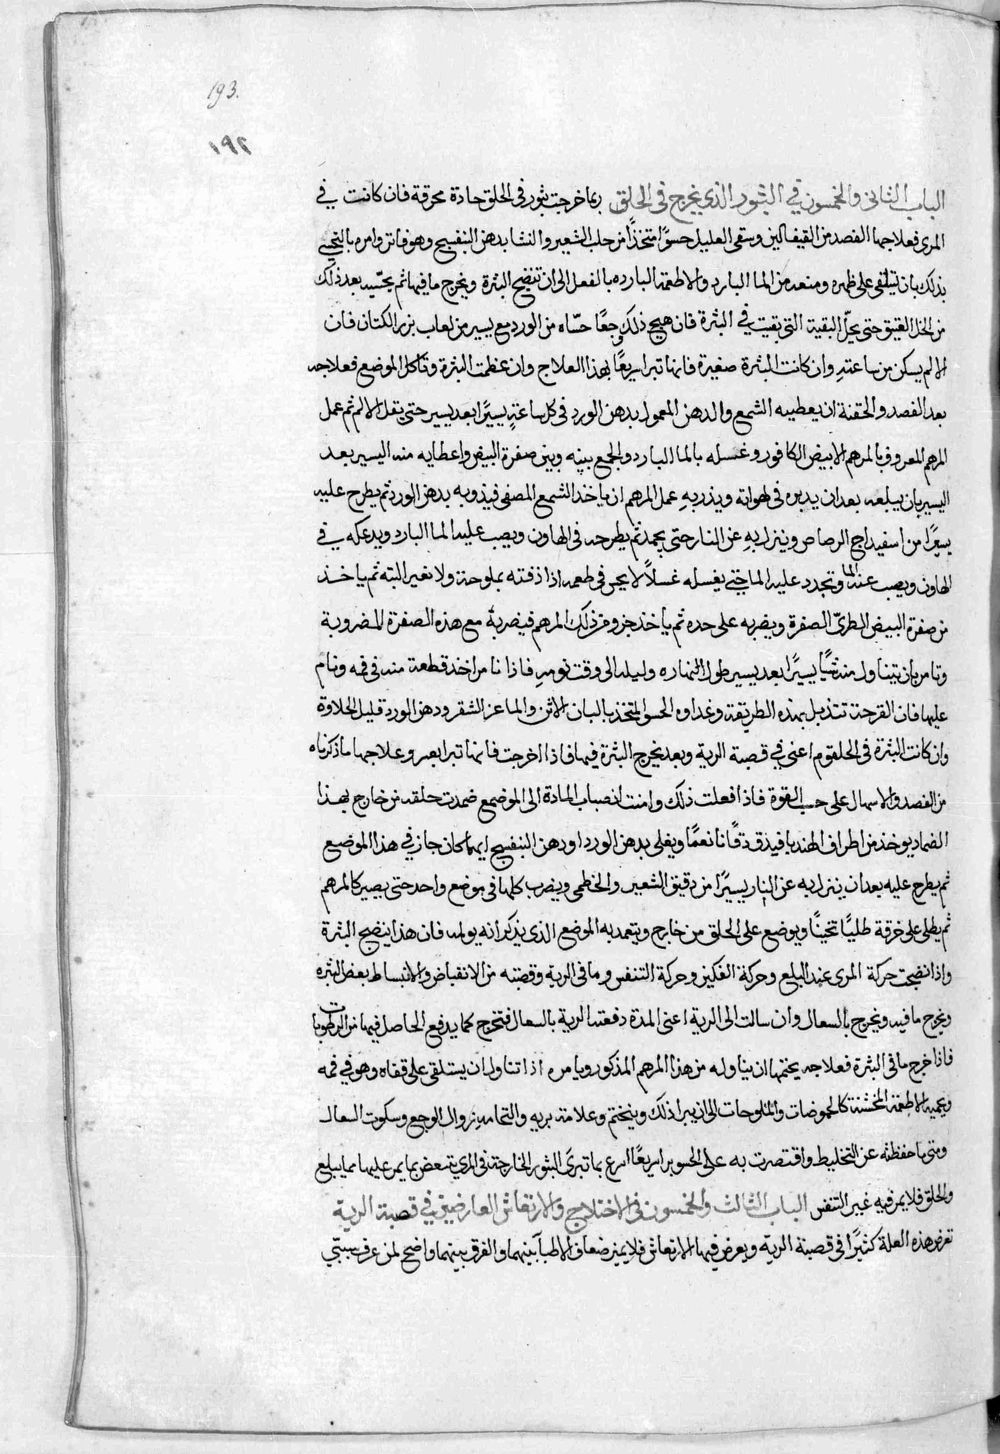 193.
١٩٢
الباب الثانى والخمسون في البثور الذى يخرج فى الحلق ربما خرجت بثور فى الحلق حادة محرقة فان كانت في
المرى فعلاجها الفصد من القيفالين وسقى العليل حسوًا متخذًا من حلب الشعير والنشا بدهن البنفسج وهو فاتر وامره بالتجنى
بذلك بان يستلقى على ظهره ومنعه من الما البارد والاطعمة البارده بالفعل الى ان تنضج البثرة ويخرج ما فيها ثم يحسّيه بعد ذلك
من الخل الفتيق حتى يحلّ البقية التى بقيت في البثرة فان هيج ذلك وجعًا حسّاه من الورد مع يسير من لعاب بزر الكتان فان
الالم يسكن من ساعته وان كانت البثرة صغيرة فانها تبرا سريعًا بهذا العلاج وان عظمت البثرة وتاكل الموضع فعلاجه
بعد الفصد والحقنة ان يعطيه الشمع والدهن المعمول بدهن الورد فى كل ساعةٍ يسيرًا بعد يسير حتى يقل الالم ثم عمل
المرهم المعروف بالمرهم الابيض الكافور وغسله بالما البارد والجمع بينه وبين صفرة البيض واعطايه منه اليسير بعد
اليسير بان يبلعه بعد ان يديره فى لهواته ويذربه عمل المرهم ان ياخذ الشمع المصفى فيذوبه بدهن الورد ثم يطرح عليه
يسيرًا من اسفيداج الرصاص وينزل به عن النار حتى يجمد ثم يطرحه فى الهاون ويصب عليه الما البارد ويدعكه في
الهاون ويصب عنه الما وتجدد عليه الما حتى يغسله غسلاً لا يحس فى طعمه اذا ذقته بملوحة ولا تغير البته ثم ياخذ
من صفرة البيض الطريّ الصفرة ويضربه على حده ثم ياخذ جزو من ذلك المرهم فيضربه مع هذه الصفرة المضروبة
وتامر بان يتناول منه شيًا يسيرًا بعد يسير طول النهاره وليله الى وقت نومه فاذا نام اخذ قطعة منه فى فمه ونام
عليها فان القرحة تندمل بهذه الطريقة وغداوه الحسو المتخذ بالبان الاتن والماعز الشقر ودهن الورد قليل الحلاوة
وان كانت البثرة فى الحلقوم اعنى في قصبة الرية وبعد يخرج البثرة فيها فاذا اخرجت فانها تبرا بعسر وعلاجها ما ذكرناه
من الفصد والاسهال على حسب القوة فاذا فعلت ذلك وامنت انصباب المادة الى الموضع ضمدت حلقه من خارج بهذا
الضماد يوخذ من اطراف الهندبا فيدق دقًا ناعمًا ويغلى بدهن الورد او دهن البنفسج ايهما كان جاز في هذا الموضع
ثم يطرح عليه بعد ان ينزل به عن النار يسيرًا من دقيق الشعير والخطمى ويضرب كلها فى موضع واحد حتى يصير كالمرهم
ثم يطلى على خرقة طليًا ثخينًا ويوضع على الحلق من خارج ويتعمد به الموضع الذى يذكر انه يولمه فان هذا ينضج البثرة
واذا نضجت حركة المرى عند البلع وحركة الفكين وحركة التنفس وما فى الرية وقصبته من الانقباض والانبساط بعض البثره
ويخرج ما فيه ويخرج بالسعال وان سالت الى الرية اعنى المدة دفعتها الرية بالسعال فتخرج كما يدفع الحاصل فيها من الرطوبات
فاذا خرج ما فى البثرة فعلاجه يختمها ان يناوله من هذا المرهم المذكور ويامره اذا تناول ان يستلقى على قفاه وهو في فمه
ويحميه الاطعمة الخشنة كالحموضات والملوحات الى ان يبرا ذلك وينختم وعلامة بريه والتحامه زوال الوجع وسكوت السعال
ومتى ما حفظته عن التخليط واقتصرت به على الحسو برا سريعًا اسرع بما تبرى البثور الخارجة فى المرى يتعض بما يمر عليها مما يبلع
والحلق فلا يمر فيه غير التنفس الباب الثالث والخمسون فى الاختلاج والارتعاش العارضين في قصبة الرية
تعرض هذه العلة كثيرًا فى قصبة الرية ويعرض فيها الارتعاش فلا يميز ضعاف الاطبآ بينهما والفرق بينهما واضح لمن عرف سببتي